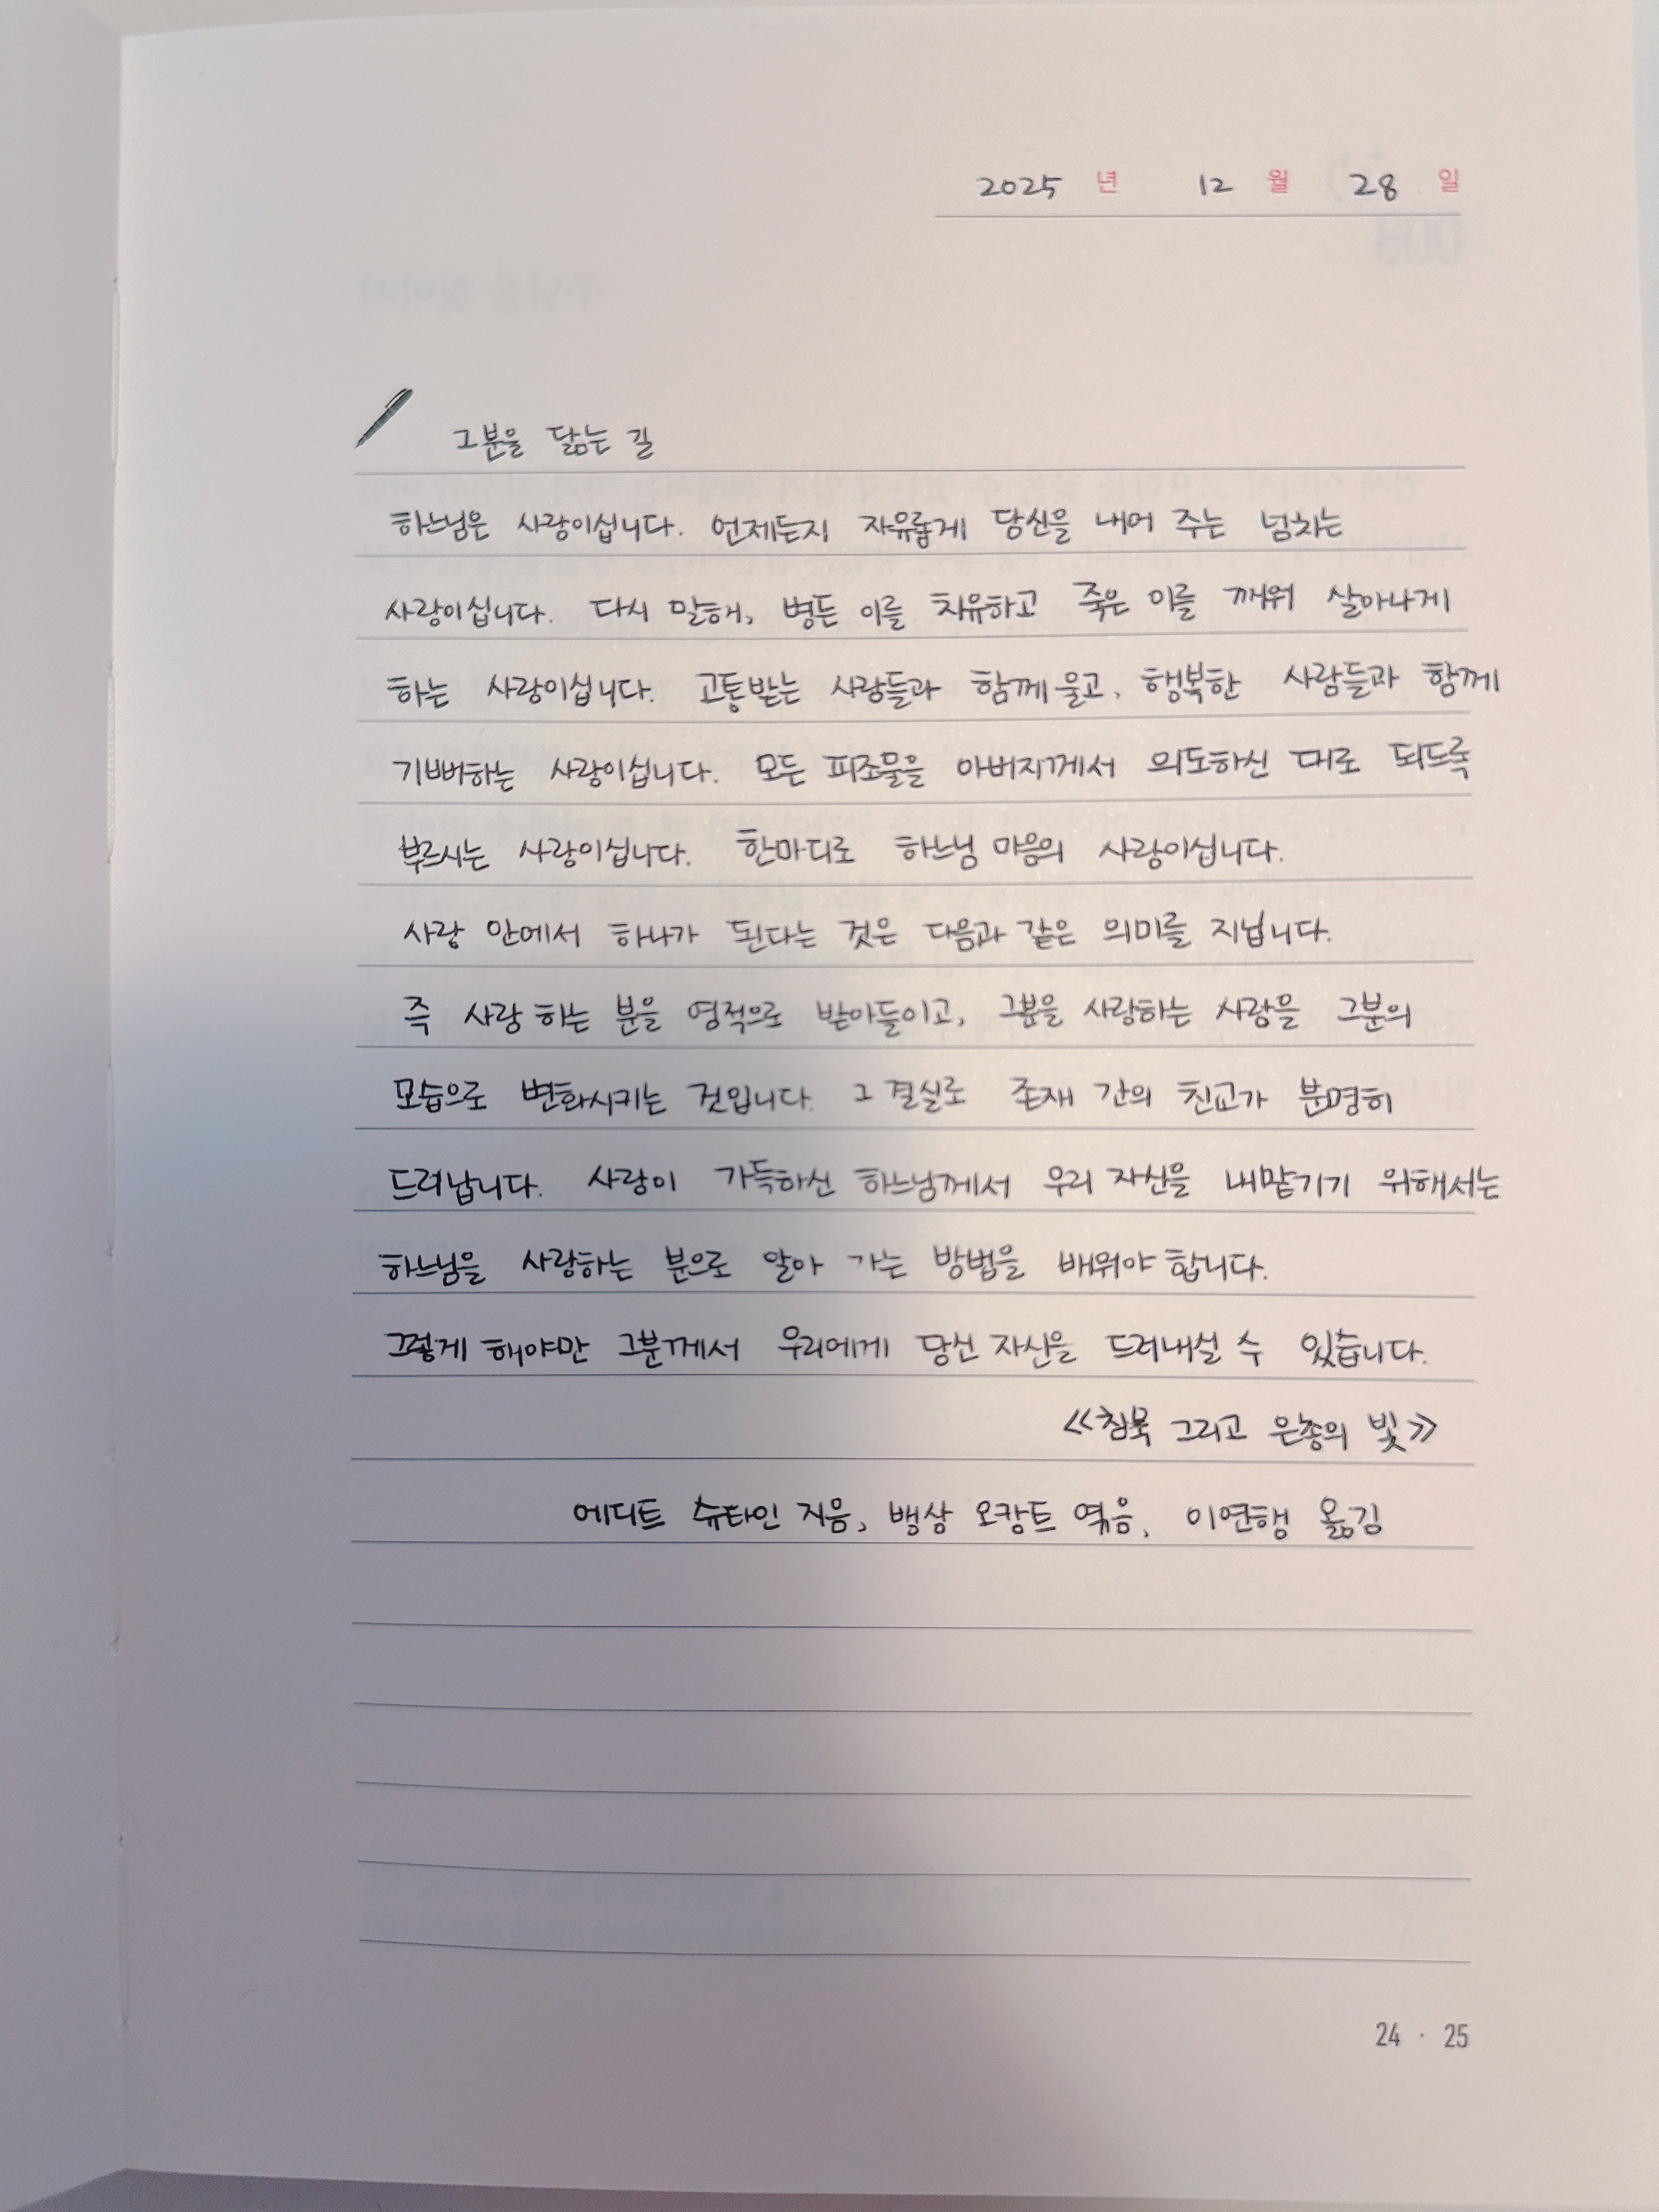 2025 년 12 월 28 일
그분을 닮는 길
하느님은 사랑이십니다. 언제든지 자유롭게 당신을 내어 주는 넘치는
사랑이십니다. 다시 말해, 병든 이를 치유하고 죽은 이를 깨워 살아나게
하는 사랑이십니다. 고통받는 사람들과 함께 울고, 행복한 사람들과 함께
기뻐하는 사랑이십니다. 모든 피조물을 아버지께서 의도하신 대로 되도록
부르시는 사랑이십니다. 한마디로 하느님 마음의 사랑이십니다.
사랑 안에서 하나가 된다는 것은 다음과 같은 의미를 지닙니다.
즉 사랑하는 분을 영적으로 받아들이고, 그분을 사랑하는 사랑을 그분의
모습으로 변화시키는 것입니다. 그 결실로 존재 간의 친교가 분명히
드러납니다. 사랑이 가득하신 하느님께서 우리 자신을 내맡기기 위해서는
하느님을 사랑하는 분으로 알아 가는 방법을 배워야 합니다.
그렇게 해야만 그분께서 우리에게 당신 자신을 드러내실 수 있습니다.
≪침묵 그리고 은총의 빛≫
에디트 슈타인 지음, 뱅상 오캉트 엮음, 이연행 옮김
24 · 25